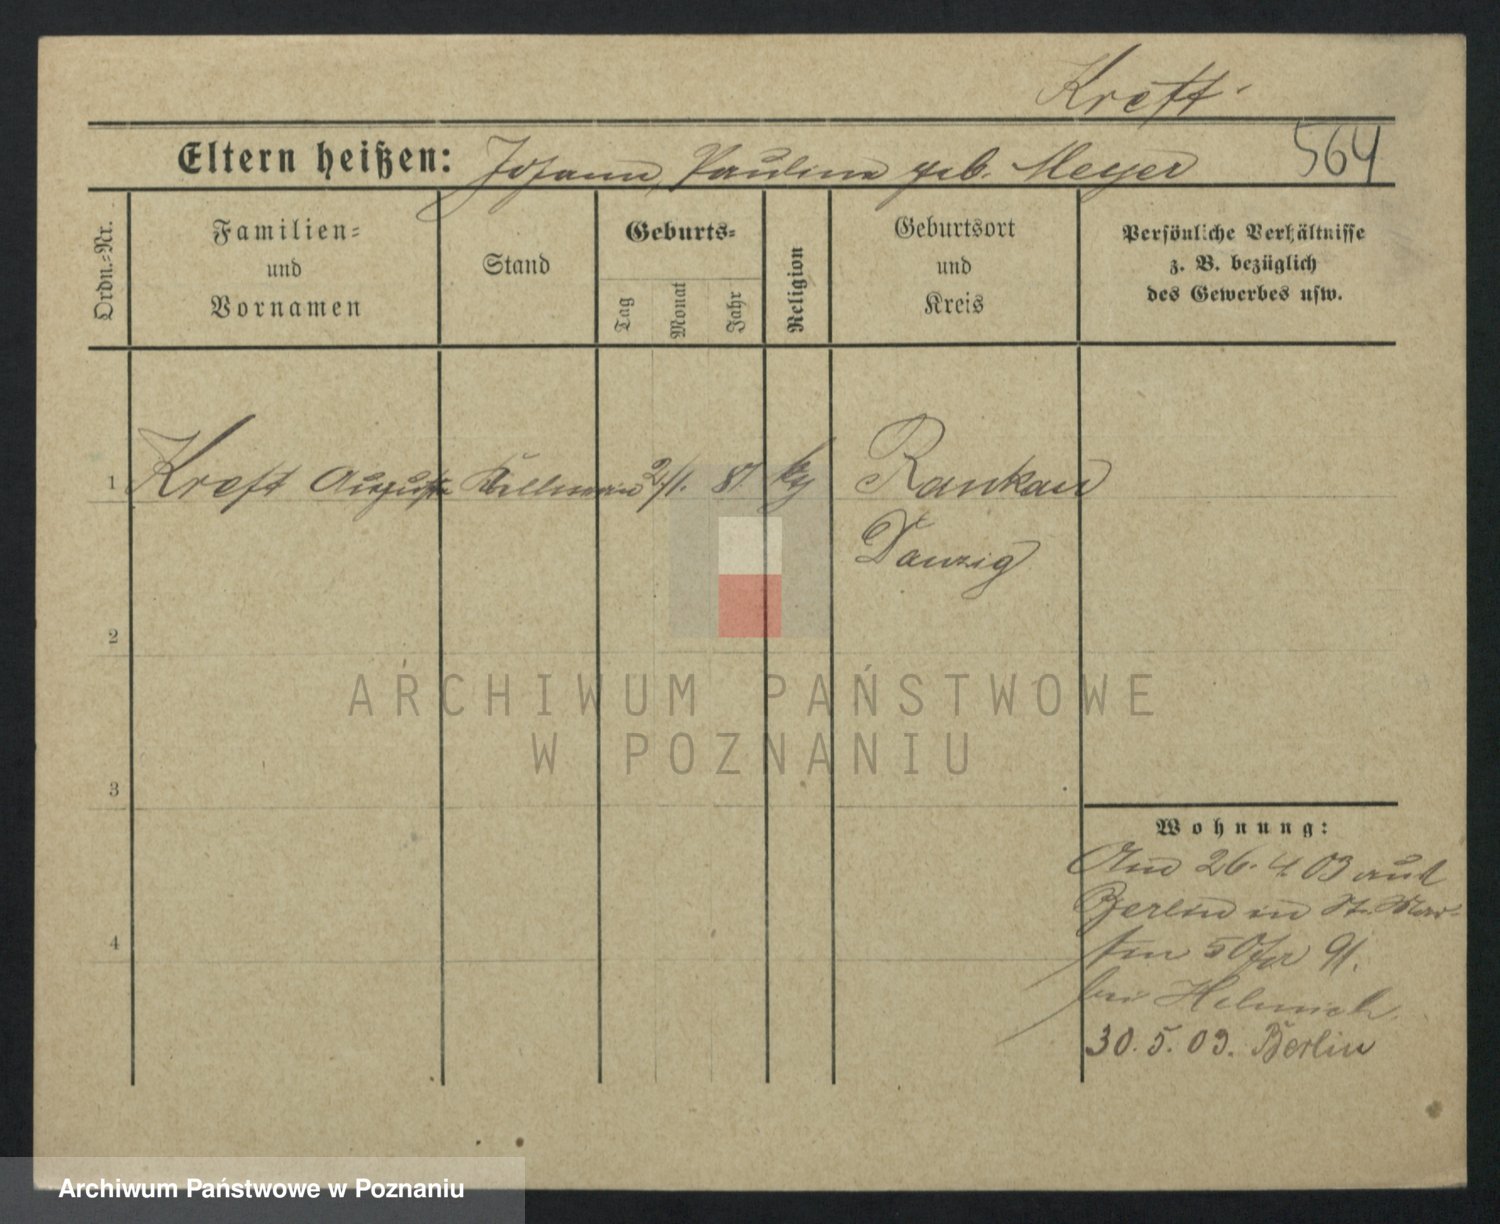 Kreft
Eltern heißen: Johann, Pauline geb. Meyer 564
Ordn.-Nr.
Familien-
und
Vornamen
Stand
Geburts-
Tag
Monat
Jahr
Religion
Geburtsort
und
Kreis
Persönliche Verhältnisse
z. B. bezüglich
des Gewerbes usw.
1 Kreft August Kellner 2/1. 87 kg Rankau
Danzig
2
3
4
ARCHIWUM PAŃSTWOWE
W POZNANIU
Wohnung:
Am 26. 4. 03 aus
Berlin in St. Mar-
tin 50 91.
bei
30. 5. 03. Berlin
Archiwum Państwowe w Poznaniu